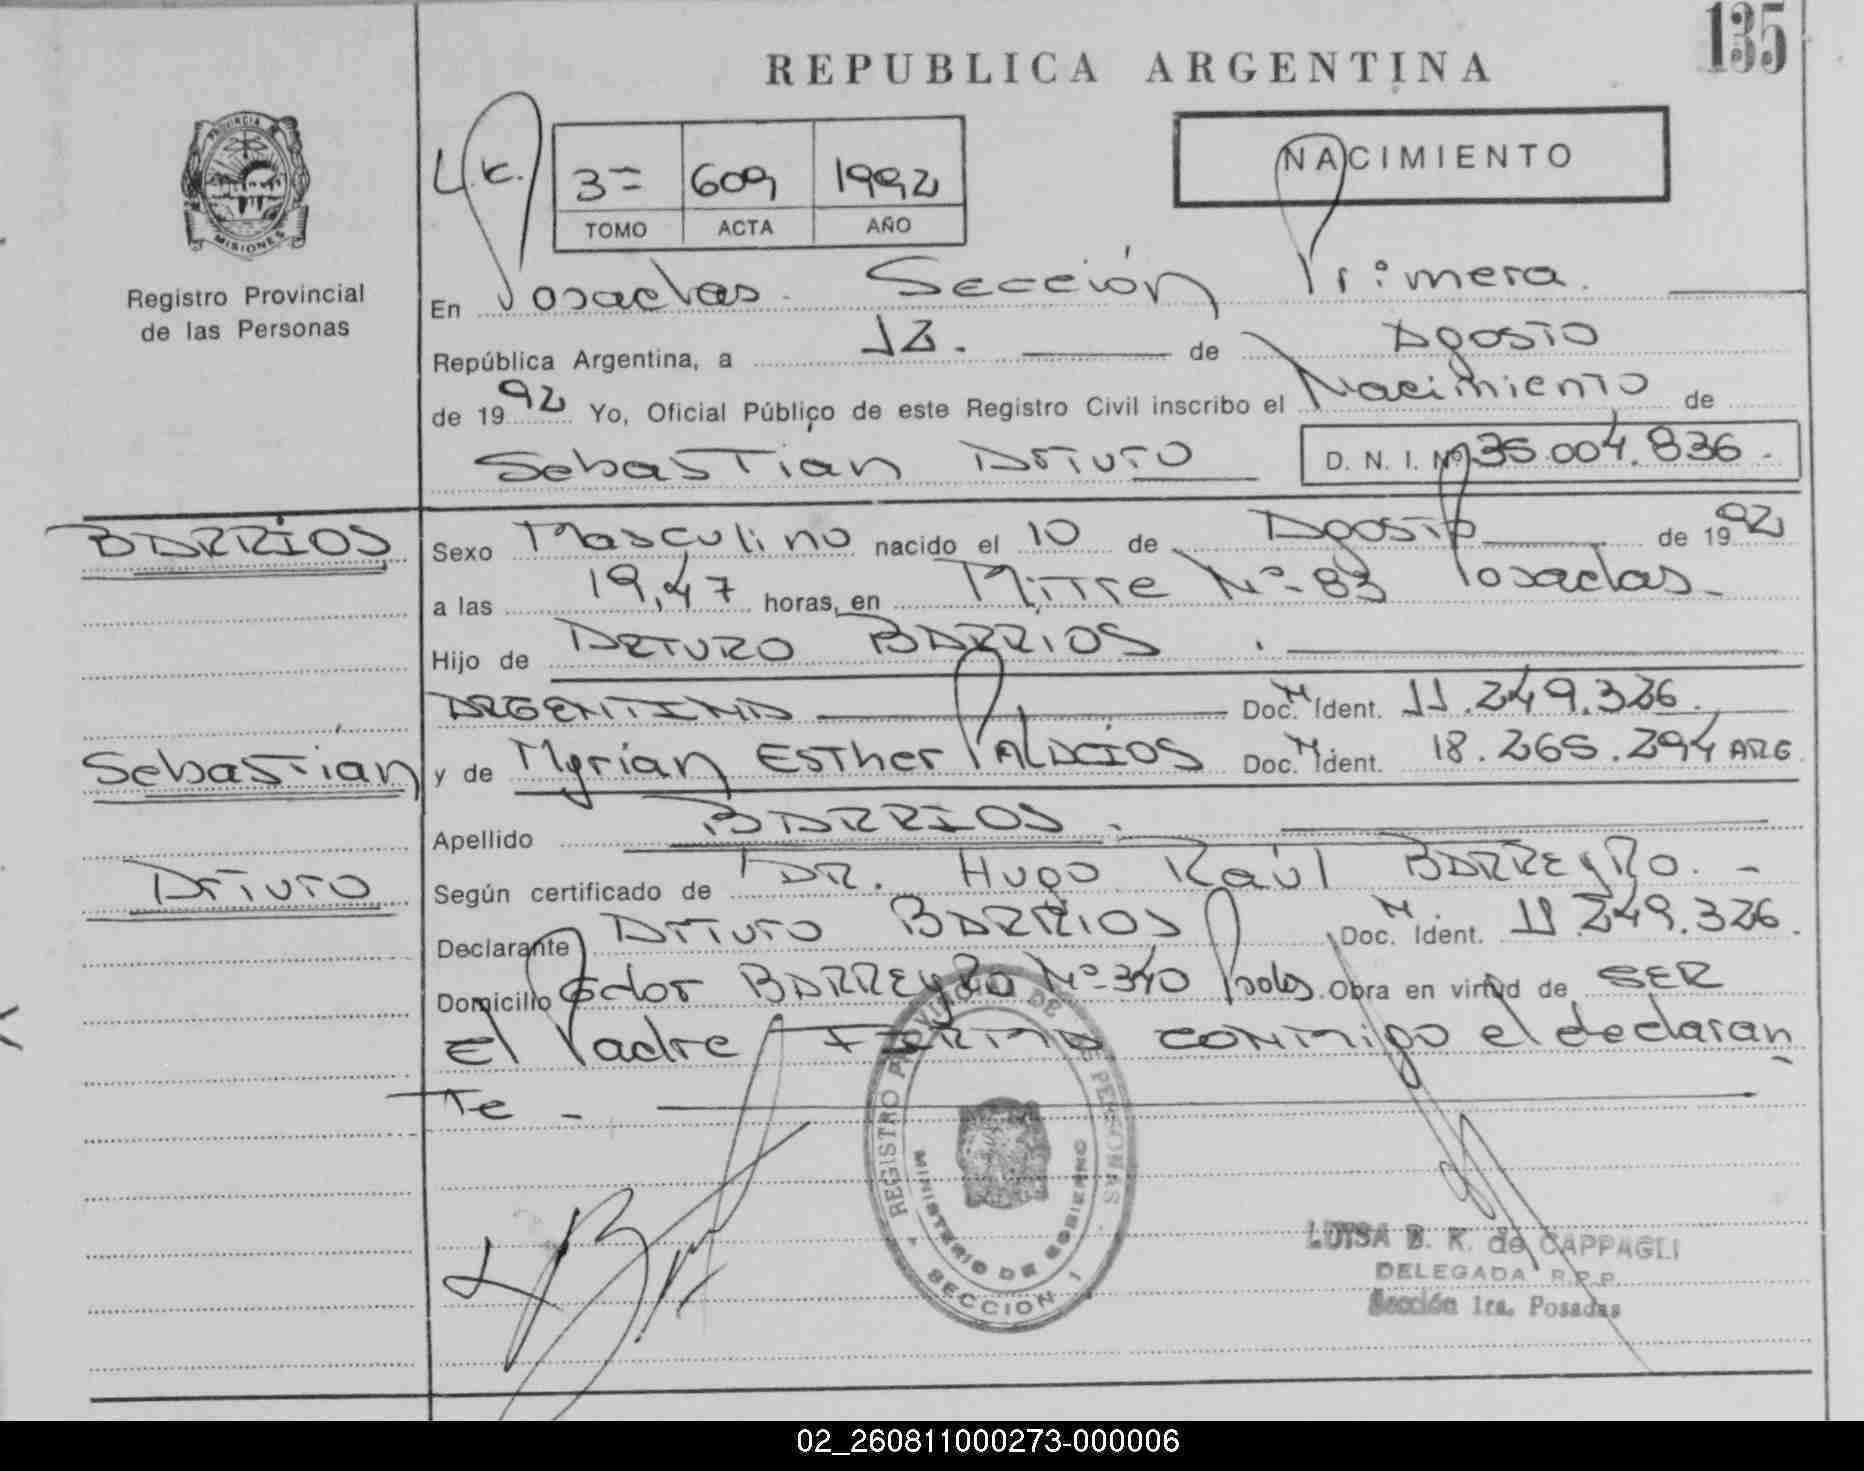 135
REPUBLICA ARGENTINA
PROVINCIA DE
MISIONES
Registro Provincial
de las Personas
3= 609 1992
TOMO ACTA AÑO
NACIMIENTO
En Posadas. Sección Primera.
República Argentina, a 12. de Agosto
de 1992 Yo, Oficial Público de este Registro Civil inscribo el Nacimiento de
Sebastian Arturo D. N. I. Nº 35.004.836.
BARRIOS Sexo Masculino nacido el 10 de Agosto de 1992
a las 19,47 horas, en Mitre Nº-83 Posadas-
Hijo de ARTURO BARRIOS.
ARGENTINA Doc. M Ident. 11.249.326.
Sebastian y de Myrian Esther PALACIOS Doc. M Ident. 18.265.294 ARG
Apellido BARRIOS.
Arturo Según certificado de DR. Hugo Raúl BARREyRO. -
Declarante Arturo BARRIOS Doc. M Ident. 11.249.326.
Domicilio Gdor BARREyRO Nº-340 Psdas. Obra en virtud de SER
El Padre FIRMA conmigo el declaran
Te -
REGISTRO PROVINCIAL DE LAS PERSONAS
MINISTERIO DE GOBIERNO
SECCION 1
LUISA B. K. de CAPPAGLI
DELEGADA R.P.P.
Sección 1ra. Posadas
02_260811000273-000006